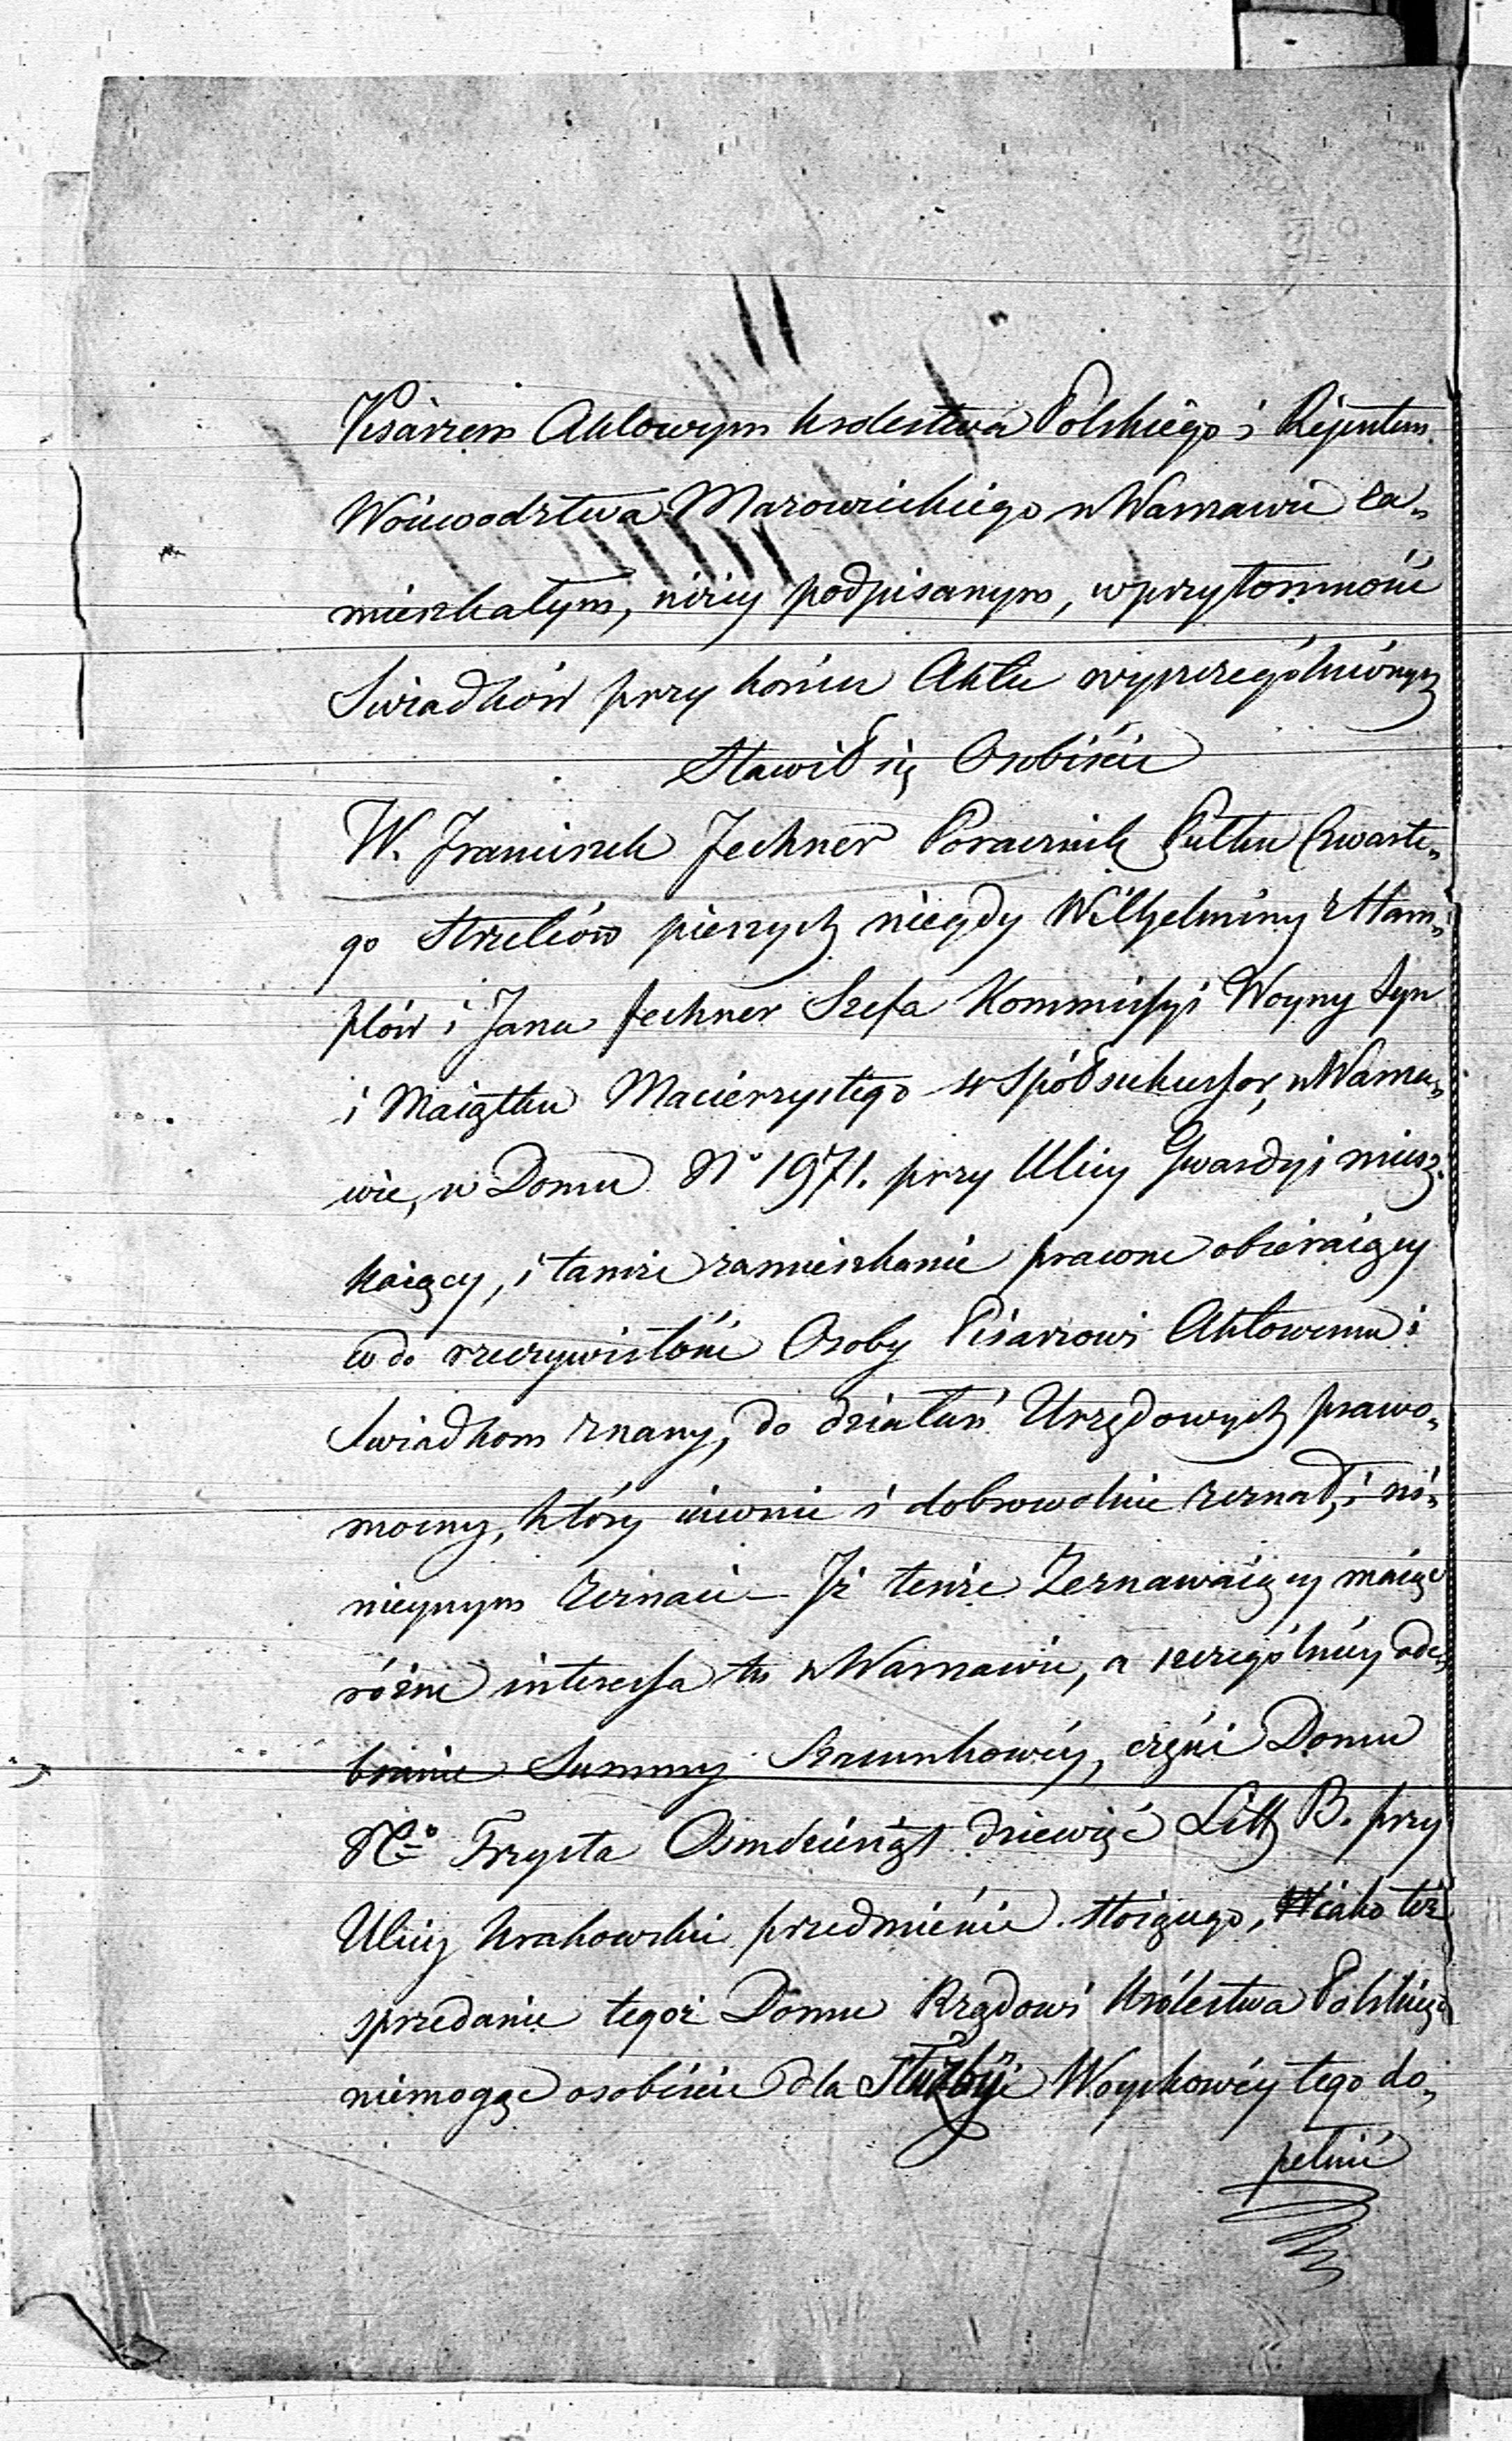 Pisarzem Aktowym Królestwa Polskiego i Rejentem
Woiewodztwa Mazowieckiego w Warszawie za-
mieszkałym, niżey podpisanym, w przytomności
Swiadków przy końcu Aktu wyszczególnionych
Stawił się Osobiście
W. Franciszek Fechner Porucznik Pułku Czwarte-
go Strzelców pieszych niegdy Wilhelminy z Stem-
plów i Jana Fechner Szefa Kommissyi Woyny Syn
i Maiątku Macierzystego Spółsukcessor, w Warsza-
wie, w Domu No 1971. przy Ulicy Gwardyi miesz-
kaiący, i tamże zamieszkanie prawne obieraiący
co do rzeczywistości Osoby Pisarzowi Aktowemu i
Swiadkom znany, do działań Urzędowych prawo-
mocny, który iawnie i dobrowolnie zeznał, i ni-
nieyszym zeznaie – Iż tenże Zeznawaiący maiąc
różne interessa tu w Warszawie, a szczególniey ode-
branie Summy Szacunkowéy, części Domu
No Trzysta Osmdziesiąt dziewięć Litt B. przy
Ulicy Krakowskie przedmieście stoiącego, iako też
sprzedanie tegoż Domu Rządowi Królestwa Polskiego
niemogąc osobiście dla Służby Woyskowéy tego do-
pełnić